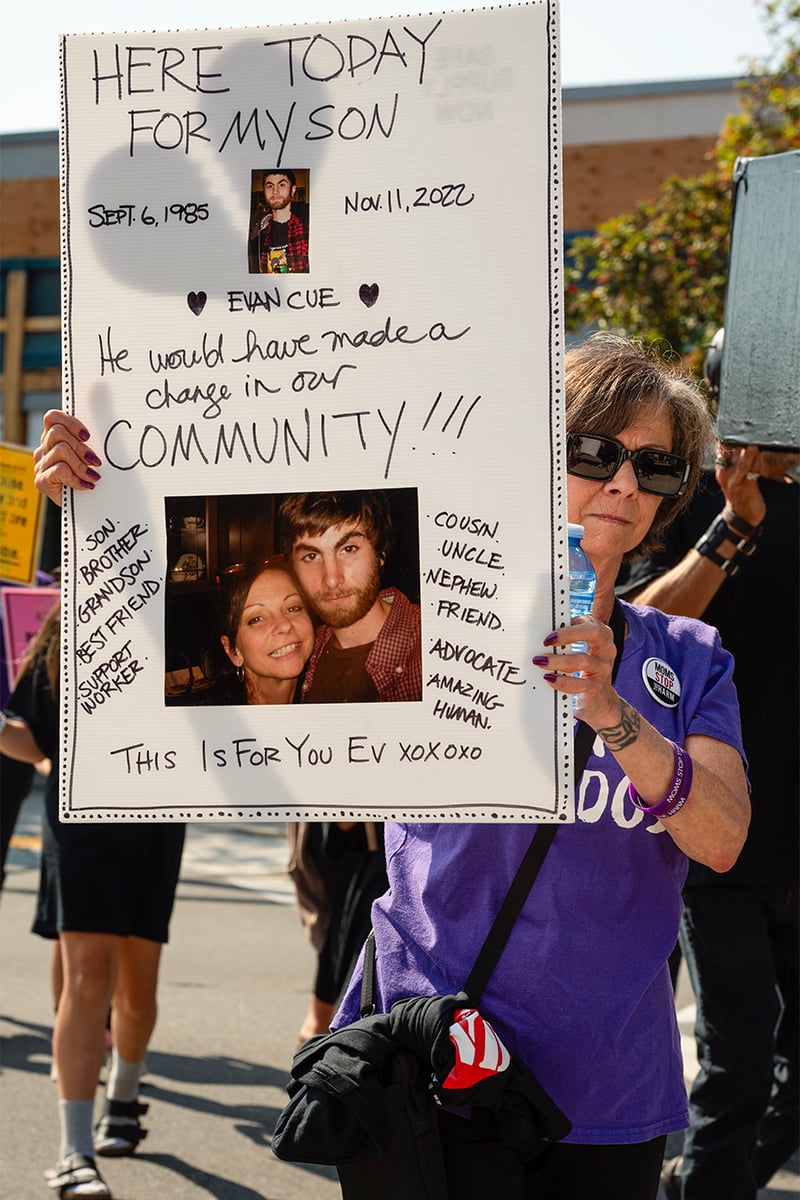 HERE TODAY
FOR MY SON
SEPT. 6, 1985
NOV. 11, 2022
♥ EVAN CUE ♥
He would have made a
change in our
COMMUNITY!!!
· SON.
· BROTHER.
· GRANDSON.
· BEST FRIEND.
· SUPPORT
WORKER.
· COUSIN
· UNCLE.
· NEPHEW.
· FRIEND.
· ADVOCATE.
· AMAZING
HUMAN.
THIS IS FOR YOU EV xoxoxo
SAFE
SUPPLY
NOW
MOMS
STOP
THE HARM
MOMS STOP
HARM